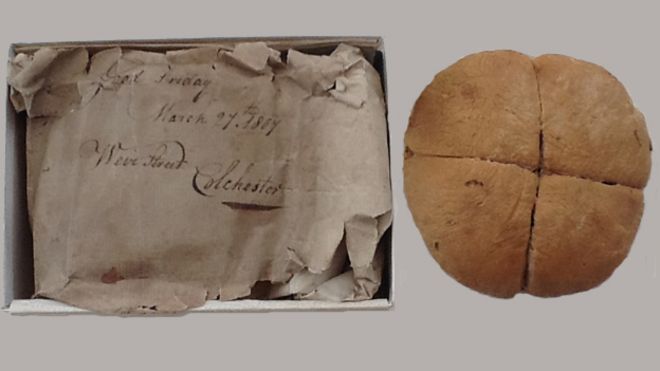 Good Friday
March 27th. 1807
Weir Street
Colchester